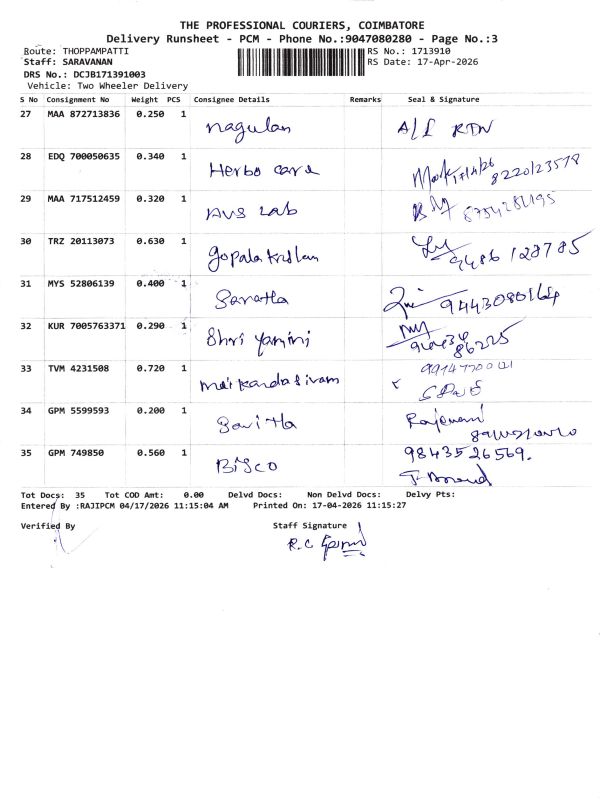 THE PROFESSIONAL COURIERS, COIMBATORE
Delivery Runsheet - PCM - Phone No.:9047080280 - Page No.:3
Route: THOPPAMPATTI RS No.: 1713910
Staff: SARAVANAN RS Date: 17-Apr-2026
DRS No.: DCJB171391003
Vehicle: Two Wheeler Delivery
S No Consignment No Weight PCS Consignee Details Remarks Seal & Signature
27 MAA 872713836 0.250 1 nagulan A/L RTN
28 EDQ 700050635 0.340 1 Herbo care 17/4/26
8220123578
29 MAA 717512459 0.320 1 AVS Lab
30 TRZ 20113073 0.630 1 gopala
9486 128785
31 MYS 52806139 0.400 1 Saratha 9443080164
32 KUR 7005763371 0.290 1 Shri Yamini
86225
33 TVM 4231508 0.720 1 markandasivam
34 GPM 5599593 0.200 1 Savitha
35 GPM 749850 0.560 1 BISCO 9843526569.
Tot Docs: 35 Tot COD Amt: 0.00 Delvd Docs: Non Delvd Docs: Delvy Pts:
Entered By :RAJIPCM 04/17/2026 11:15:04 AM Printed On: 17-04-2026 11:15:27
Verified By Staff Signature
R.C